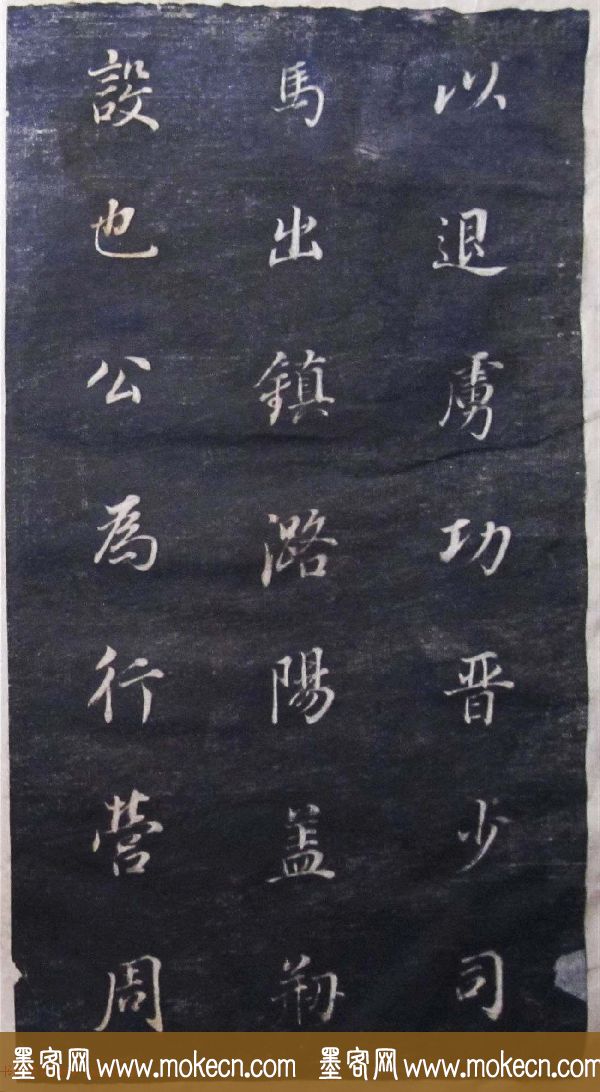 以退虜功晋少司
馬出鎮潞陽盖剏
設也公為行營周
墨客网 www.mokecn.com 墨客网 www.mokecn.com